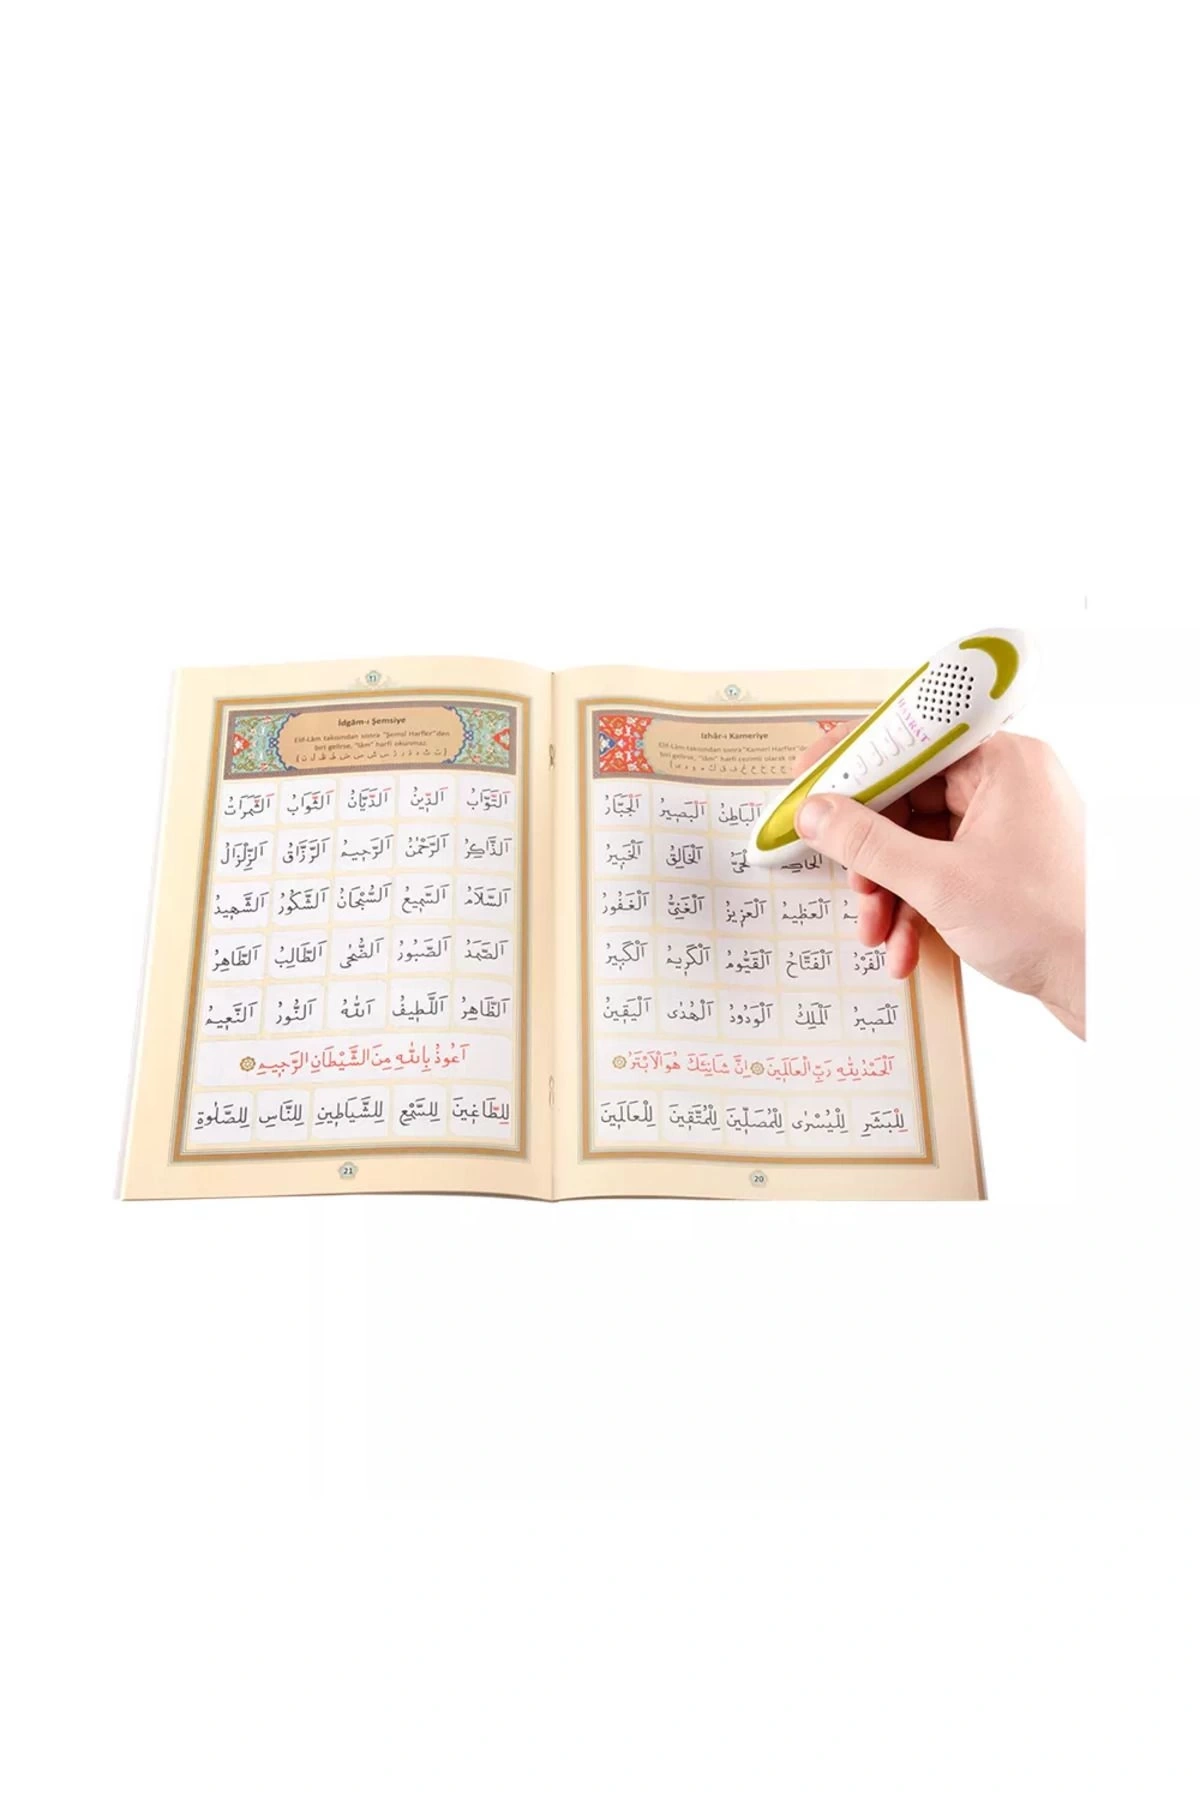 ٢٠
Izhâr-ı Kameriye
Elif-Lâm takısından sonra "Kameri Harfler"den
biri gelirse, "lâm" harfi cezimli olarak
اَلْبَاطِنُ اَلْبَصِيرُ اَلْجَبَّارُ
اَلْخَالِقُ اَلْخَبِيرُ
اَلْعَظِيمُ اَلْعَزِيزُ اَلْغَنِىُّ اَلْغَفُورُ
اَلْفَرْدُ اَلْفَتَّاحُ اَلْقَيُّومُ اَلْكَرِيمُ اَلْكَبِيرُ
اَلْمَصِيرُ اَلْمَلِكُ اَلْوَدُودُ اَلْهُدٰى اَلْيَقِينُ
اَلْحَمْدُ لِلّٰهِ رَبِّ الْعَالَمِينَ اِنَّ شَانِئَكَ هُوَ الْاَبْتَرُ
لِلْبَشَرِ لِلْيُسْرٰى لِلْمُصَلِّينَ لِلْمُتَّقِينَ لِلْعَالَمِينَ
20
٢١
İdgâm-ı Şemsiye
Elif-Lâm takısından sonra "Şemsî Harfler"den
biri gelirse, "lâm" harfi okunmaz.
(ت ث د ذ ر ز س ش ص ض ط ظ ل ن)
اَلتَّوَّابُ اَلدِّينُ اَلدَّيَّانُ اَلثَّوَابُ اَلثَّمَرَاتُ
اَلذَّاكِرُ اَلرَّحْمٰنُ اَلرَّحِيمُ اَلرَّزَّاقُ اَلزِّلْزَالُ
اَلسَّلَامُ اَلسَّمِيعُ اَلسُّبْحَانُ اَلشَّكُورُ اَلشَّهِيدُ
اَلصَّمَدُ اَلصَّبُورُ اَلضُّحٰى اَلطَّالِبُ اَلطَّاهِرُ
اَلظَّاهِرُ اَللَّطِيفُ اَللّٰهُ اَلنُّورُ اَلنَّعِيمُ
اَعُوذُ بِاللّٰهِ مِنَ الشَّيْطَانِ الرَّجِيمِ
لِلطَّاغِينَ لِلسَّمْعِ لِلشَّيَاطِينِ لِلنَّاسِ لِلصَّلٰوةِ
21
HAYRAT